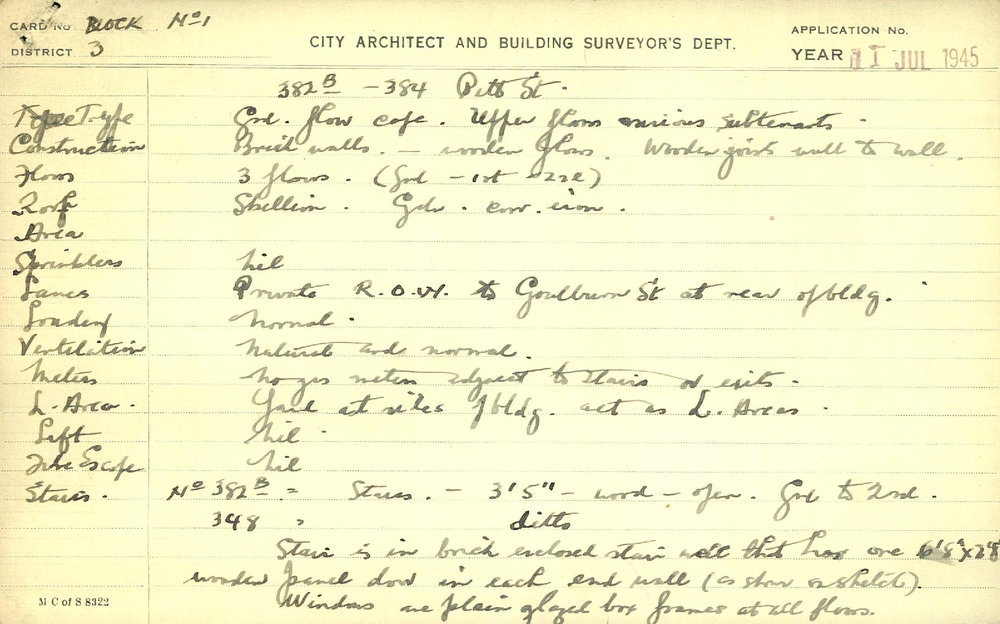 CARD No. BLOCK No 1
APPLICATION No.
DISTRICT 3
CITY ARCHITECT AND BUILDING SURVEYOR'S DEPT.
YEAR 11 JUL 1945
382B - 384 Pitt St.
Type Grd. floor cafe. Upper floors various subtenants.
Construction Brick walls. - wooden floors. Wooden joists wall to wall.
Floors 3 floors. (Grd - 1st - 2nd)
Roof Skellion. Galv. corr. iron.
Area
Sprinklers nil
Lanes Private R.O.W. to Goulburn St at rear of bldg.
Loading normal.
Ventilation natural and normal.
Meters no gas meters adjacent to stairs or exits.
L. Area. Yard at sides of bldg. act as L. Areas.
Lift nil.
Fire Escape nil
Stairs. No 382B = Stairs. - 3'5" - wood - open. Grd to 2nd.
348 " ditto
Stair is in brick enclosed stair well that has one 6'8"x2'8"
wooden panel door in each end wall (as shown on sketch).
Windows are plain glazed box frames at all floors.
M C of S 8322